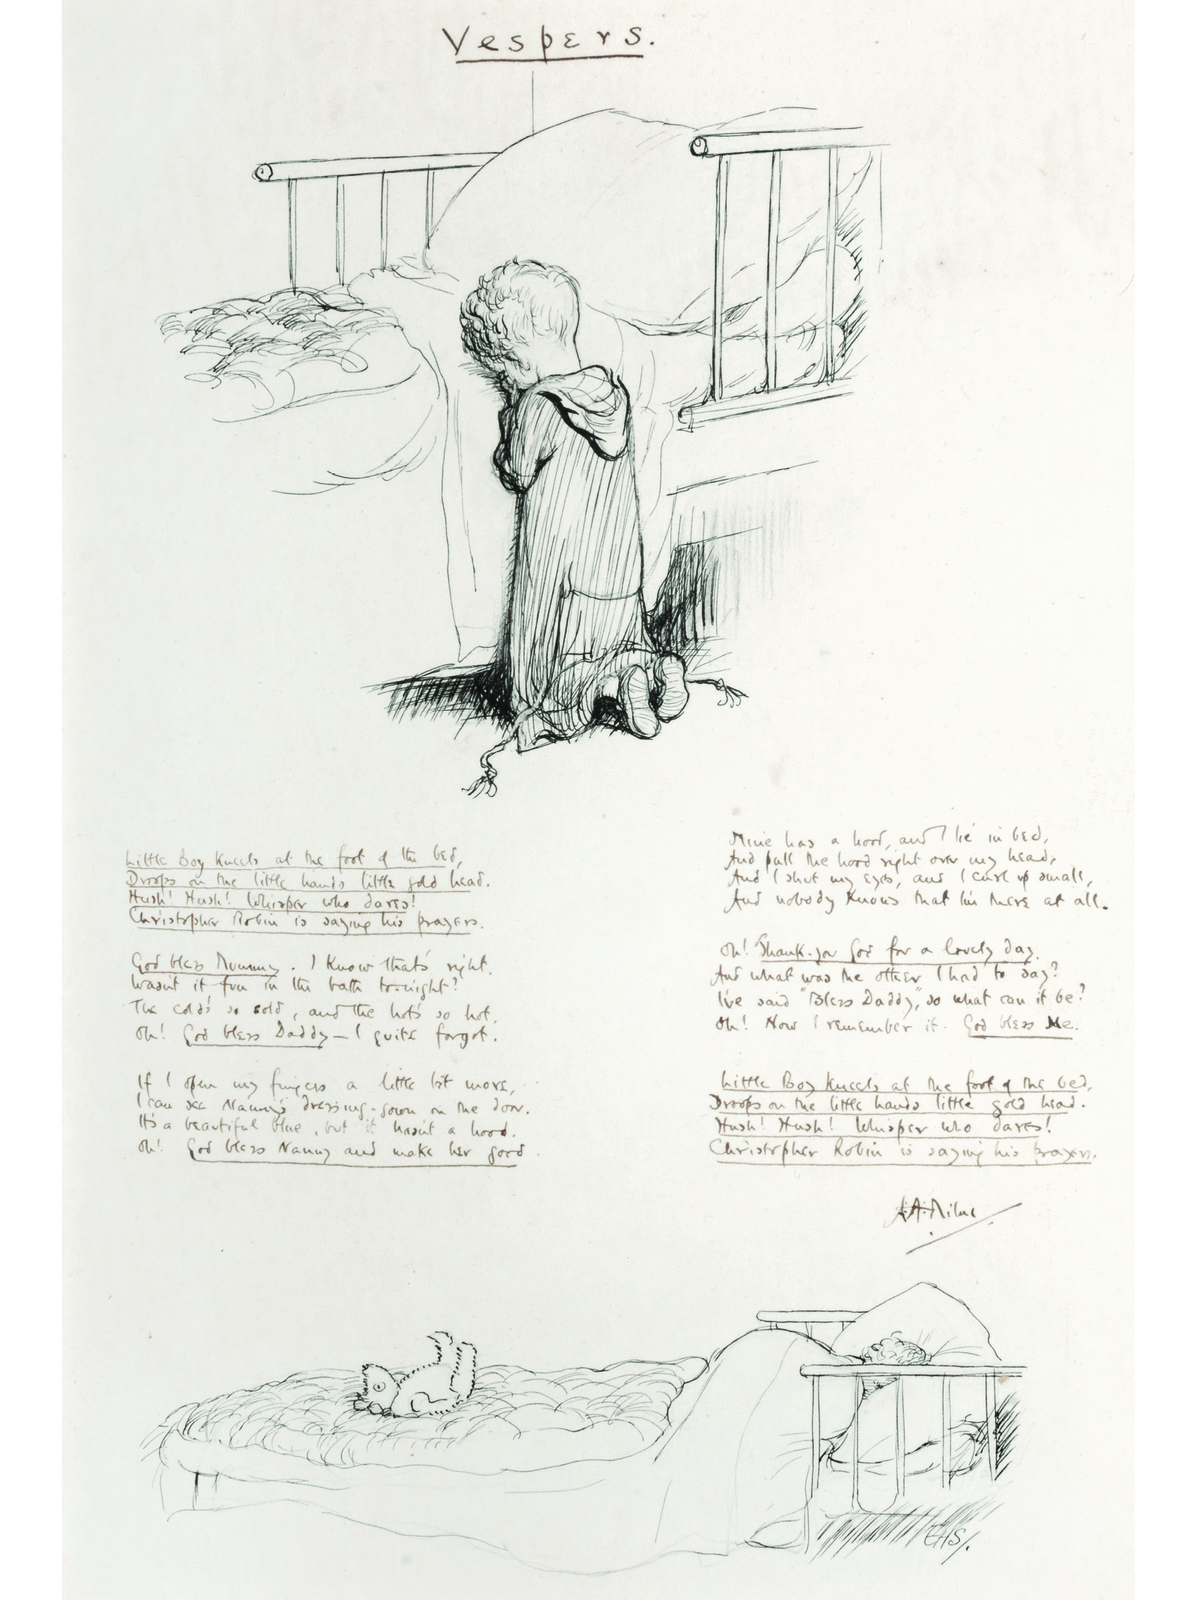 Vespers.
Little Boy kneels at the foot of the bed,
Droops on the little hands little gold head.
Hush! Hush! Whisper who dares!
Christopher Robin is saying his prayers.
God bless Mummy. I know that's right.
Wasn't it fun in the bath to-night?
The cold's so cold, and the hot's so hot.
Oh! God bless Daddy — I quite forgot.
If I open my fingers a little bit more,
I can see Nanny's dressing-gown on the door.
It's a beautiful blue, but it hasn't a hood.
Oh! God bless Nanny and make her good.
Mine has a hood, and I lie in bed,
And pull the hood right over my head,
And I shut my eyes, and I curl up small,
And nobody knows that I'm there at all.
Oh! Thank-you God for a lovely day.
And what was the other I had to say?
I've said "Bless Daddy," so what can it be?
Oh! Now I remember it. God bless Me.
Little Boy kneels at the foot of the bed,
Droops on the little hands little gold head.
Hush! Hush! Whisper who dares!
Christopher Robin is saying his prayers.
A.A. Milne
EHS.